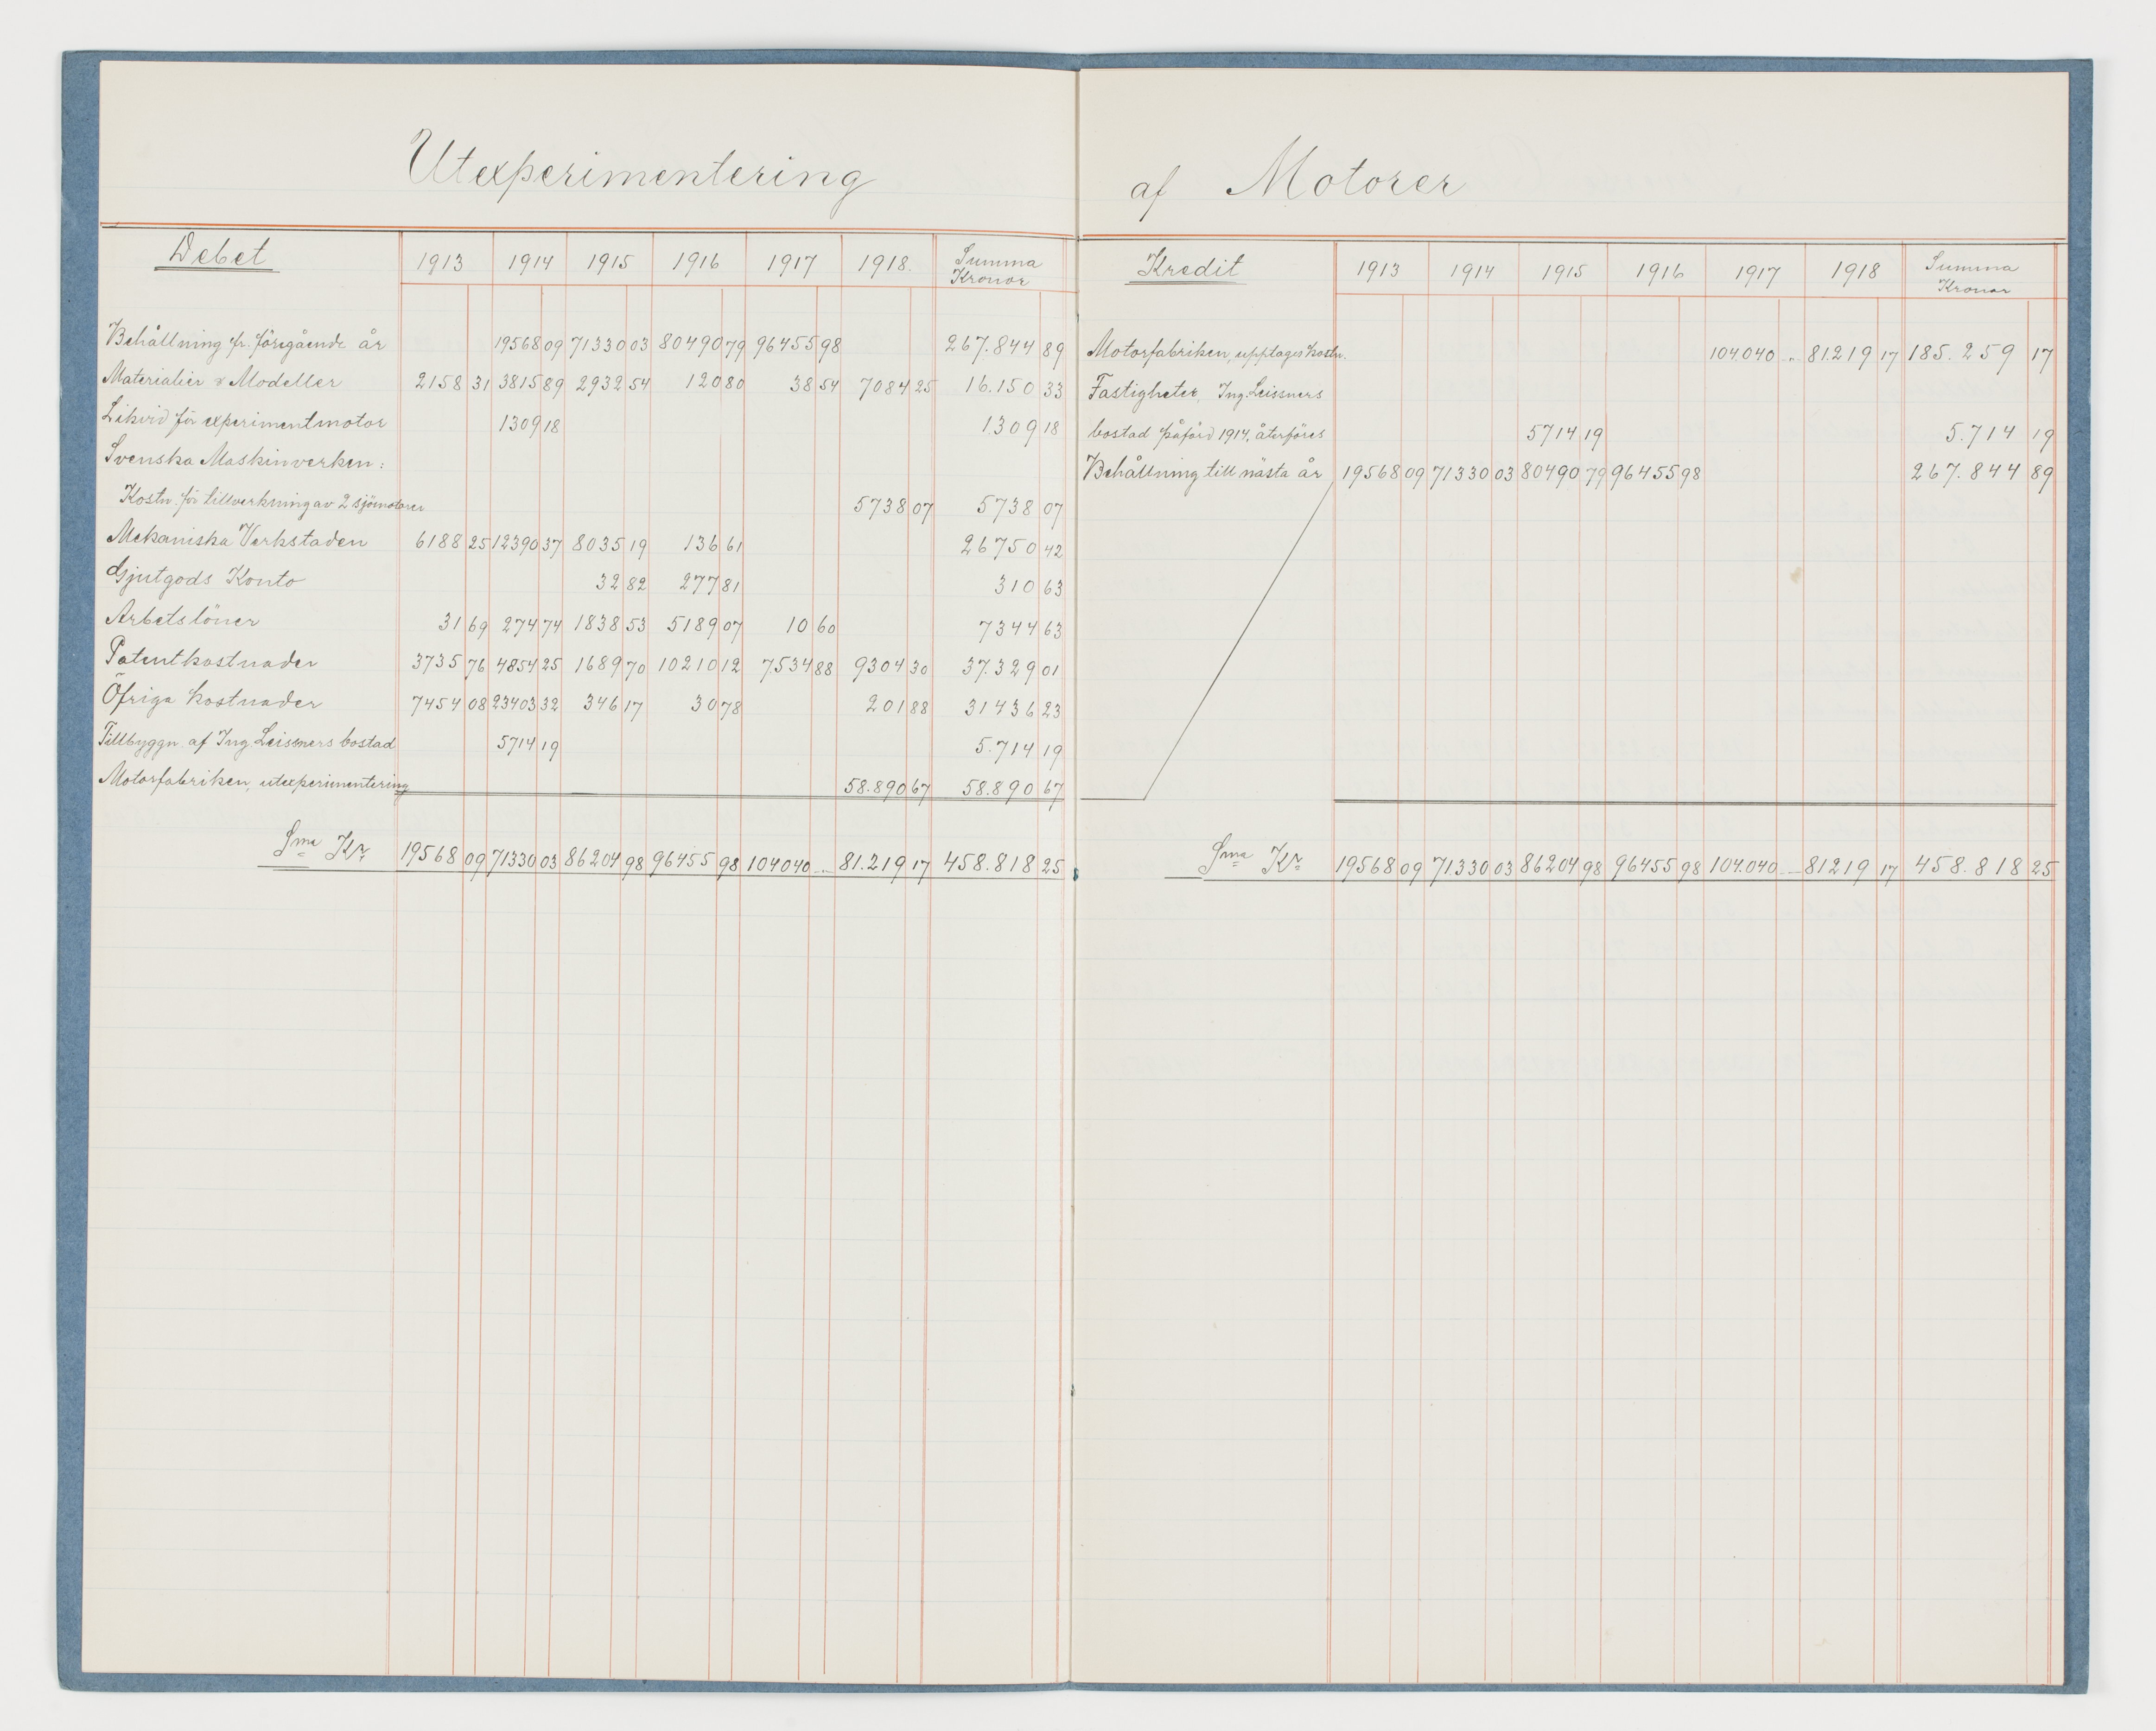 Utexperimentering
Debet 1913 1914 1915 1916 1917 1918. Summa Kronor
Behållning fr. föregående år 19568 09 71330 03 80490 79 96455 98 267.844 89
Materialier & Modeller 2158 31 3815 89 2932 54 120 80 38 54 7084 25 16.150 33
Likvid för experimentmotor 1309 18 1309 18
Svenska Maskinverken:
Kostn. för tillverkning av 2 sjömotorer 5738 07 5738 07
Mekaniska Verkstaden 6188 25 12390 37 8035 19 136 61 26750 42
Gjutgods Konto 32 82 277 81 310 63
Arbetslöner 31 69 274 74 1838 53 5189 07 10 60 7344 63
Patentkostnader 3735 76 4854 25 1689 70 10210 12 7.534 88 9304 30 37.329 01
Öfriga kostnader 7454 08 23403 32 346 17 30 78 201 88 31436 23
Tillbyggn. af Ing Leissners bostad 5714 19 5.714 19
Motorfabriken, utexperimentering 58.890 67 58.890 67
Sma Kr 19568 09 71330 03 86204 98 96455 98 104040 .. 81.219 17 458.818 25
af Motorer
Kredit 1913 1914 1915 1916 1917 1918 Summa Kronor
Motorfabriken, upptages kostn. 104.040 .. 81.219 17 185.259 17
Fastigheter, Ing. Leissners
bostad påförd 1914, återföres 5714 19 5.714 19
Behållning till nästa år 19568 09 71330 03 80490 79 96455 98 267.844 89
Sma Kr 19568 09 71.330 03 86204 98 96455 98 104.040 .. 81219 17 458.818 25